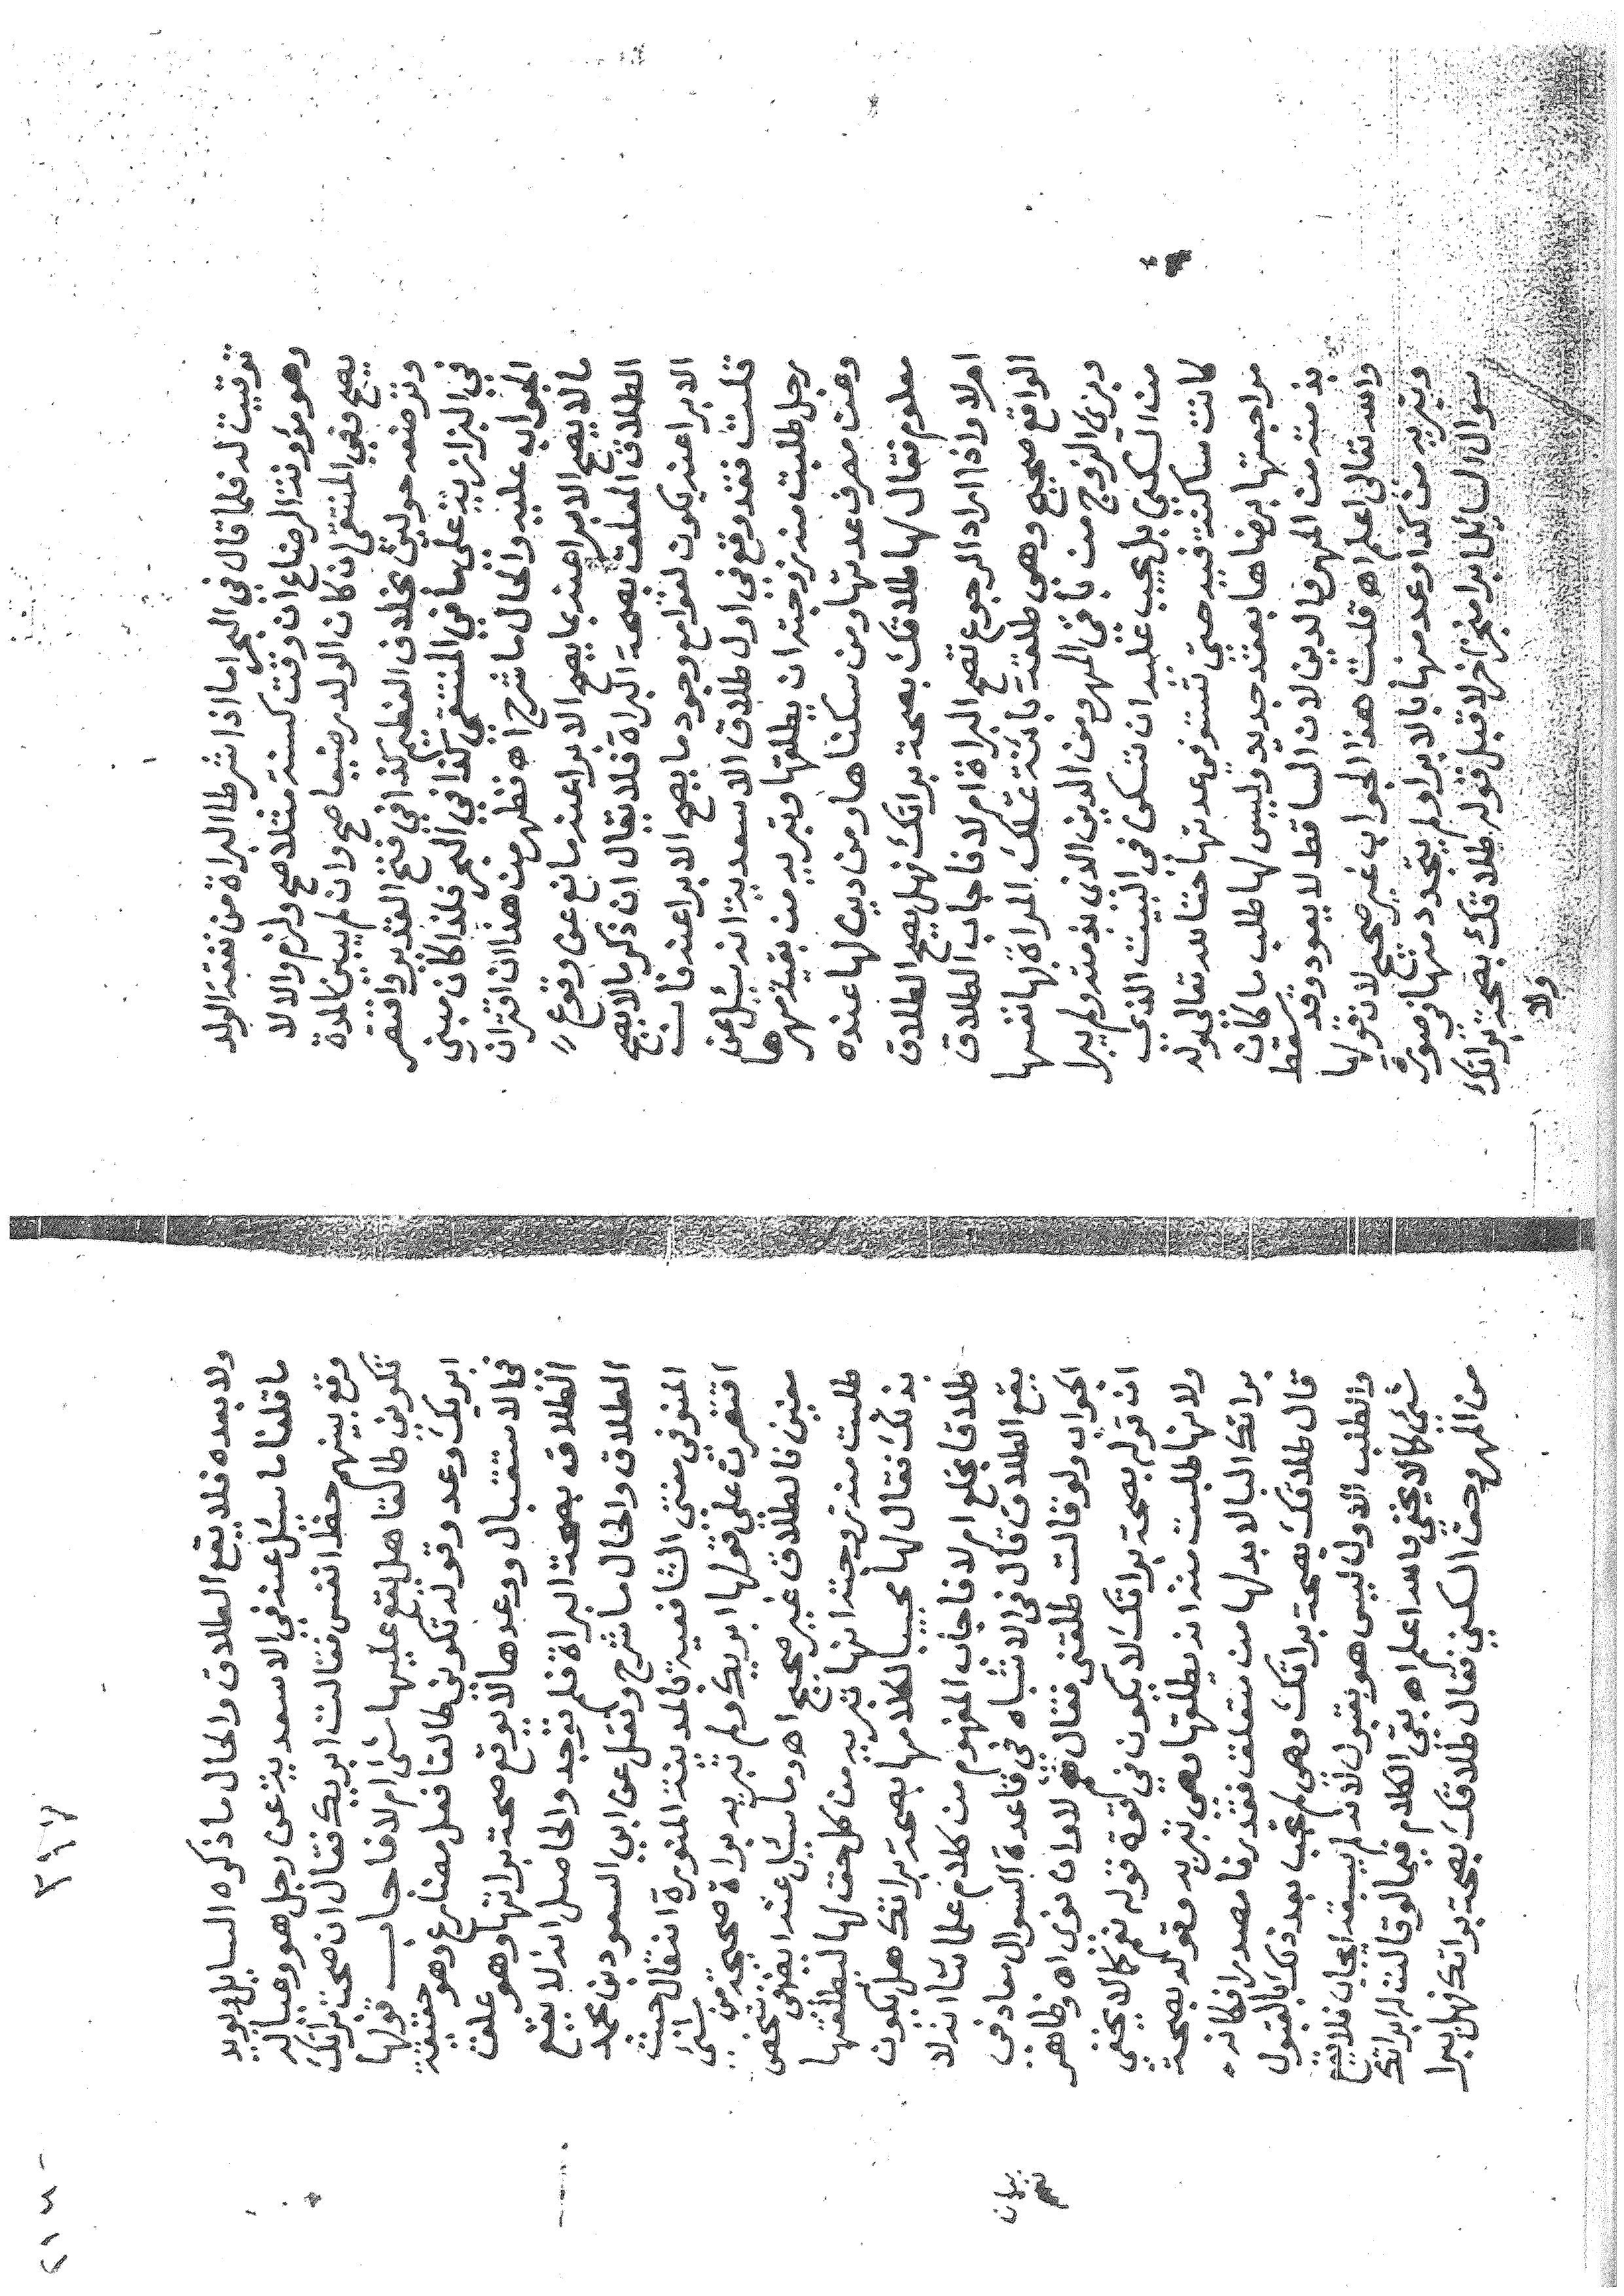 توقيت له فلما قال في البحر اما اذا شرطا البراة من نفقة الولد
وهو مؤونة الرضاع ان وقتت كسنة مثلا صح ولزم والا لا
يصح وفي المنتقى ان كان الولد رضيعا صح وان لم يبين المدة
وترضعه حولين بخلاف الفطيم كذا في فتح القدير واقتصر
في البزازية على ما في المنتقى كذا في البحر فلذا كان مبنى
الجواب عليه والحال ما شرح اه فظهر من هذا ان اقتران
مالا يصح الابرا عنه بما يصح الابرا عنه مانع عن وقوع
الطلاق المعلق بصحة البراة فلا يقال ان ذكر مالا يصح
الابرا عنه يكون لغوا مع وجود ما يصح الابرا عنه فان
قلت فقد وقع في اول طلاق الاسعدية انه سئل عن
رجل طلبت منه زوجته ان يطلقها وتبريه من بقية مهرها
وعن مصرف عدتها ومن سكناها ومن دين لها عنده
معلوم فقال لها طلاقك بصحة براتك فهل يصح الطلاق
ام لا واذا اراد الرجوع تصح البراة ام لا فاجاب الطلاق
الواقع صحيح وهى طلقة باينة تملك المراة بها نفسها
وبرئ الزوج من باقى المهر ومن الدين الذى بذمته ولم يبرا
من السكنى بل يجب عليه ان تسكن في البيت الذى
كانت ساكنة فيه حتى تستوفى عدتها حقا لله تعالى وله
مراجعتها برضاها بعقد جديد وليس لها طلب ما كان
بذمته من المهر والدين لان الساقط لا يعود وقد سقط
والله تعالى اعلم اه قلت هذا الجواب غير صحيح لان قولها
وتبريه من كذا وعد منها بالابرا ولم يتجدد منها في صورة
سوال السايل ابرا منجز اخر لا قبل قوله طلاقك بصحة براتك
ولا
ولا بعده فلا يقع الطلاق والحال ما ذكره السايل ويويد
ما قلنا ما سئل عنه في الاسعدية عن رجل هو وعياله
وقع بينهم حظ انفس فقالت ابريك فقال ان صحت براتك
تكونى طالقا هل يقع عليها شى ام لا فاجاب قولها
ابريك وعد وقوله تكونى طالقا فعل مضارع وهو حقيقة
في الاستقبال ووعدها لا يوقع صحة براتها وهو علق
الطلاق بصحة البراة فلم توجد والحاصل انه لا يقع
الطلاق والحال ما شرح ونقل عن ابن السعود بن محمد
المنوفى مفتى الشافعية بالمدينة المنورة انه قال حيث
اقتصرت على قولها ابريك ولم تبريه براة صحيحة من شى
معين فالطلاق غير صحيح اه وما سئل عنه ايضا عن شخص
طلبت منه زوجته انها تبريه من كل حق لها ليطلقها
بذلك فقال لها مجيبا لكلامها بصحة براتك هل يكون
طلاقا بخلع ام لا فاجاب المفهوم من كلام علمائنا انه لا
يقع الطلاق قال في الاشباه في قاعدة السوال معاد في
الجواب ولو قالت طلقنى فقال نعم لا وان نوى اه وظاهر
ان قوله بصحة براتك لا يكون في قوة قوله نعم كما لا يخفى
ولانها طلبت منه ان يطلقها بعى تبريه وقوله بصحة
براتك البا لا بد لها من متعلق فقدرنا مصدرا فكانه
قال طلاقك بصحة براتك وهى لم تجب بعد ذلك بالقبول
والطلب الاول ليس هو بقبول لانه لم يسبقه ايجاب فلا يقع
شى كما لا يخفى والله اعلم اه بقى الكلام فيما لو قالت له ابراتك
من المهر وحق السكنى فقال طلاقك بصحة براتك فهل يبرا
بيان